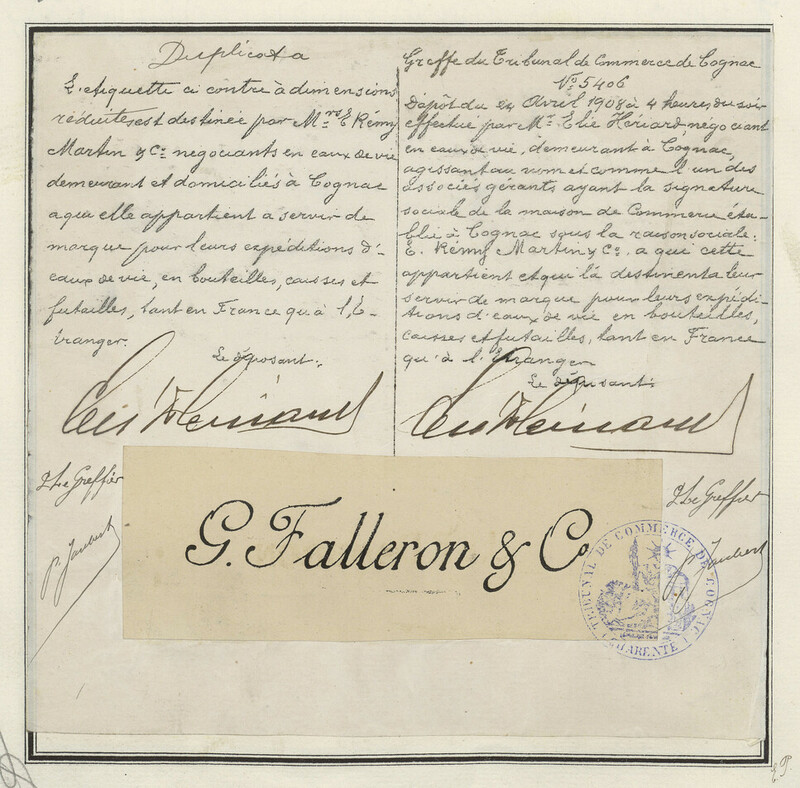 Duplicata
L'etiquette ci contre à dimensions
réduites est destinée par Mrs E. Rémy
Martin & Cie negociants en eaux de vie
demeurant et domiciliés à Cognac
a qui elle appartient a servir de
marque pour leurs expéditions d'
eaux de vie, en bouteilles, caisses et
futailles, tant en France qu'à l'É-
tranger.
Le déposant:
Le Greffier
P. Jaubert
Greffe du Tribunal de Commerce de Cognac
No 5406
Dépôt du 24 Avril 1908 à 4 heures du soir
effectué par Mr Elie Hériard, négociant
en eaux de vie, demeurant à Cognac,
agissant au nom et comme l'un des
associés gérants ayant la signature
sociale de la maison de Commerce éta-
blie à Cognac sous la raison sociale:
E. Rémy Martin & Co. a qui cette
appartient et qui la destinent a leur
servir de marque pour leurs expédi-
tions d'eaux de vie en bouteilles,
caisses et futailles, tant en France
qu'à l'Étranger
Le déposant:
Le Greffier
P. Jaubert
G. Falleron & Co
TRIBUNAL DE COMMERCE DE COGNAC
CHARENTE